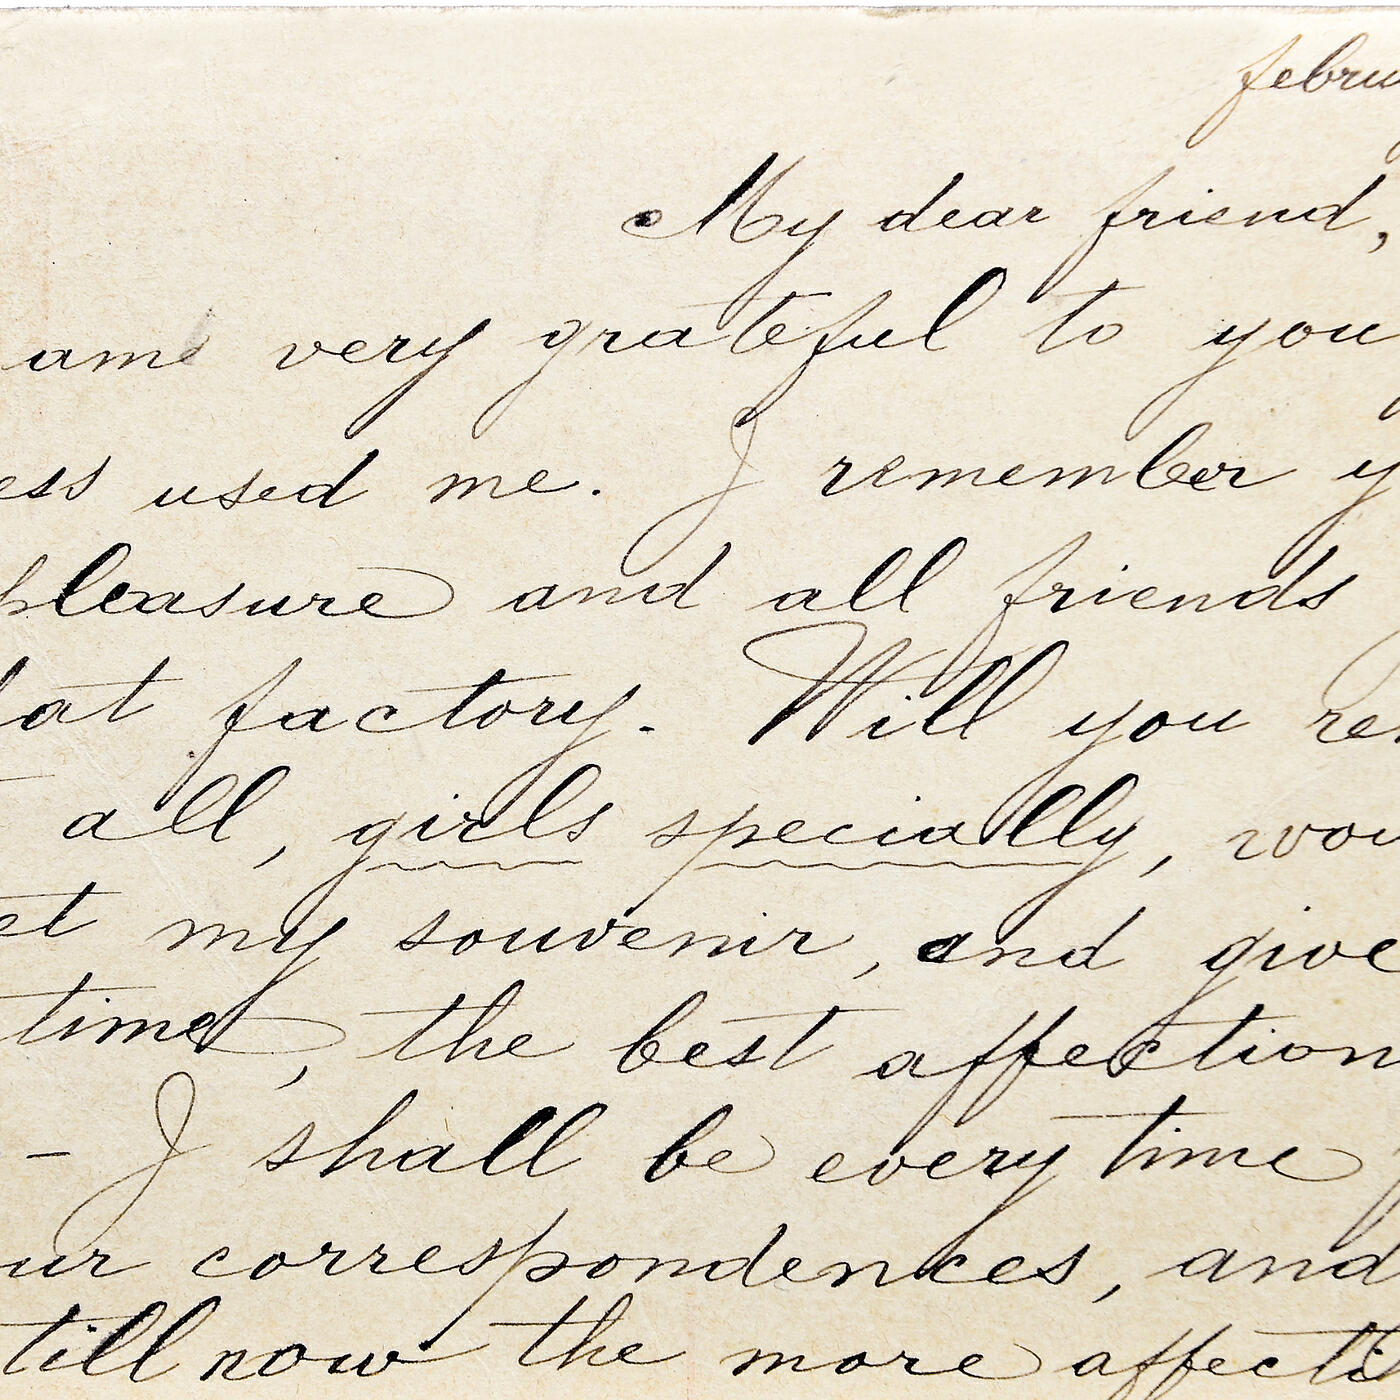 febru
My dear friend,
ame very grateful to you
ess used me. I remember y
pleasure and all friends
hat factory. Will you re
all, girls specially, wou
et my souvenir, and give
time, the best affection
- I shall be every time
ur correspondences, and
till now the more affecti